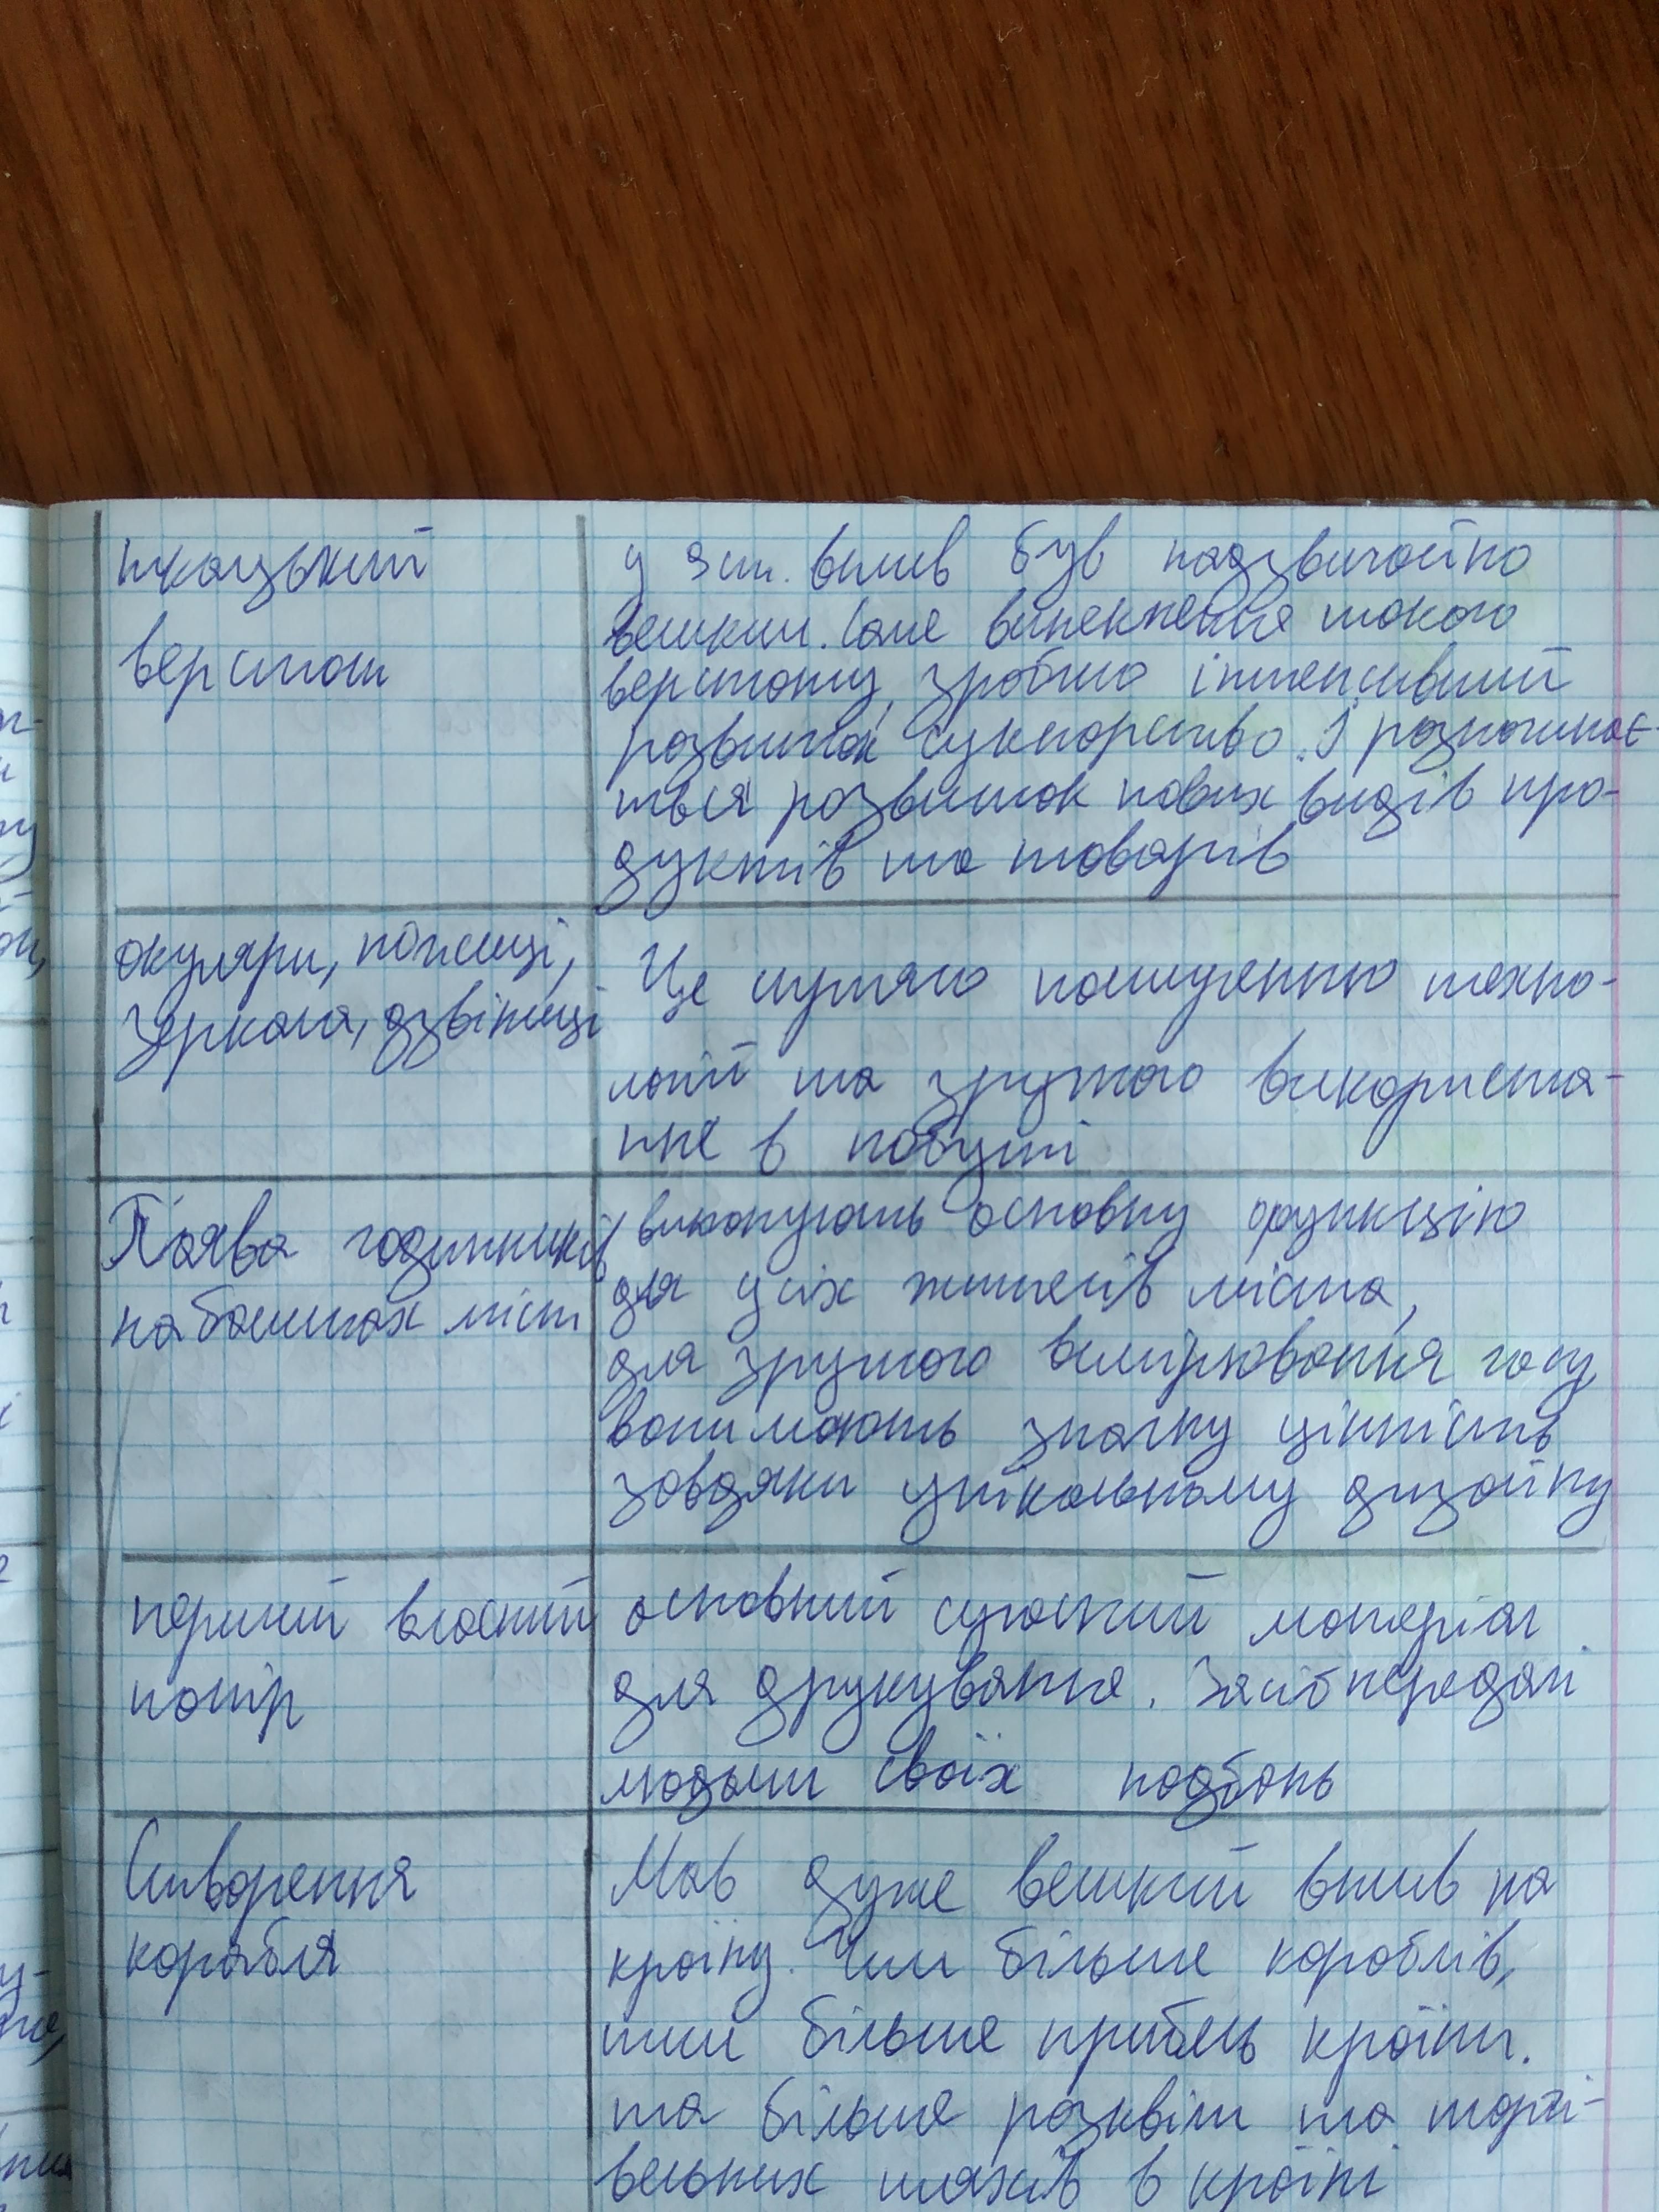 ткацький
верстат
у 3 ст. вплив був надзвичайно
великим. Саме винекнення такого
верстату, зробило інтенсивний
розвиток сукнорство. І розпочинає-
ться розвиток нових видів про-
дуктів та товарів
окуляри, ножиці,
зеркала, дзвінниці
Це сутяго поширенню техно-
логій та зручного використа-
ння в побуті
Поява годинників
на баштах міст
виконують основну функцію
для усіх жителів міста,
для зручного вимірювання часу
вони мають значну цінність
завдяки унікальному дизайну
перший власний
папір
основний сучасний матеріал
для друкування. Засіб передачі
людьми своїх надбань
Створення
корабля
Мав дуже великий вплив на
країну. Чим більше кораблів,
тим більше прибль країни.
та більше розквіт та торгі-
вельних шляхів в країні